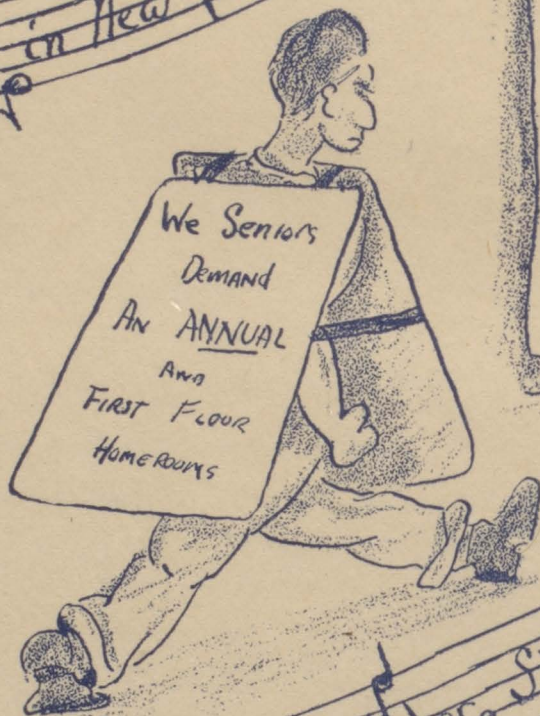 in New
We Seniors
Demand
An ANNUAL
And
First Floor
Homerooms